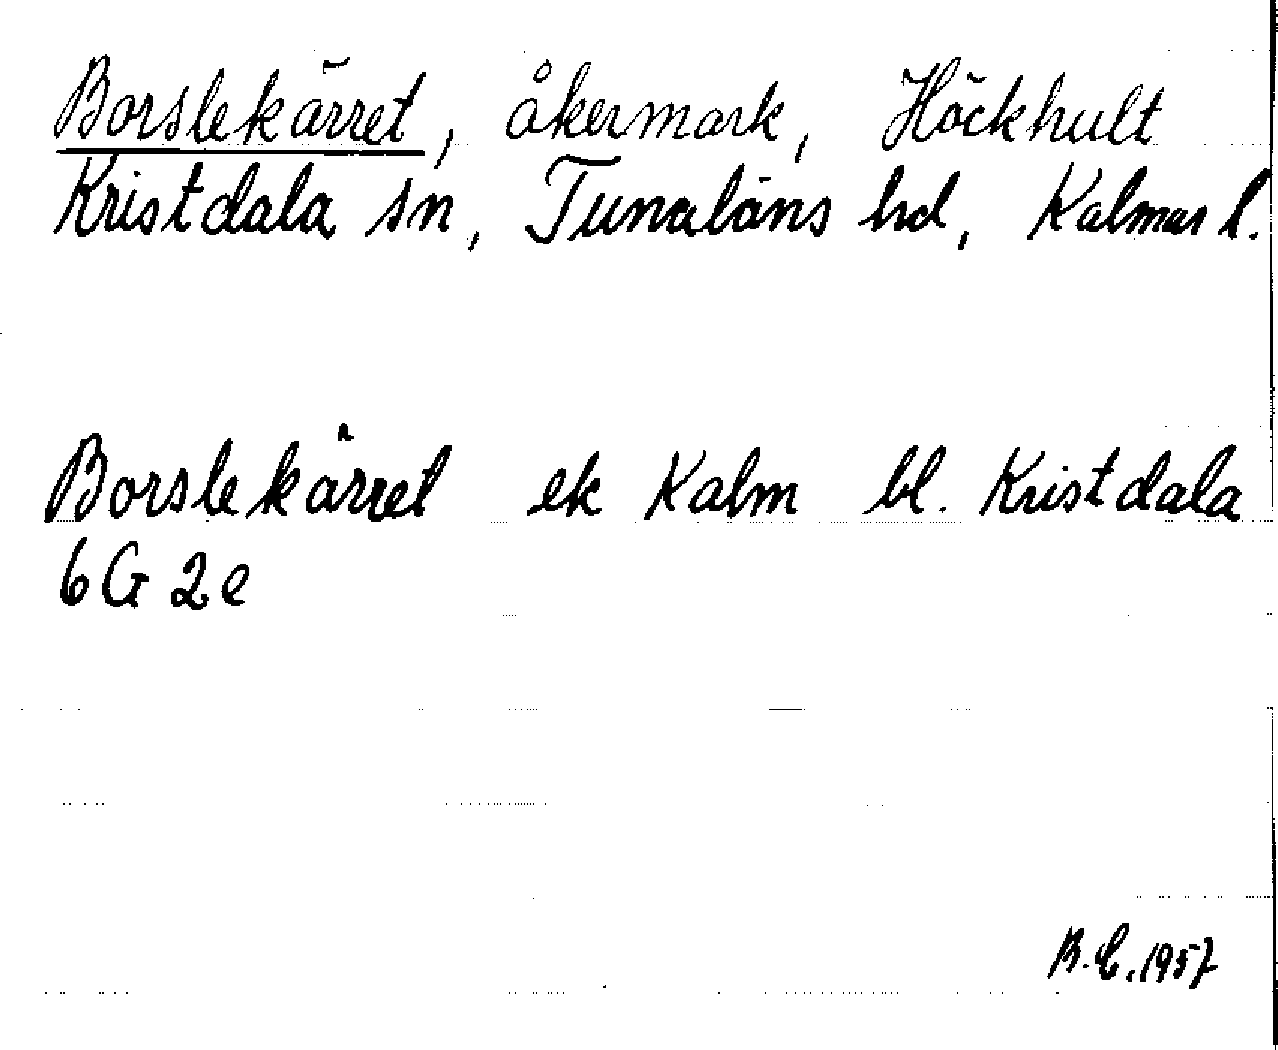 Borslekärret, åkermark, Höckhult
Kristdala sn, Tunaläns hd, Kalmar l.
Borslekärret ek Kalm bl. Kristdala
6G 2e
B.C. 1957